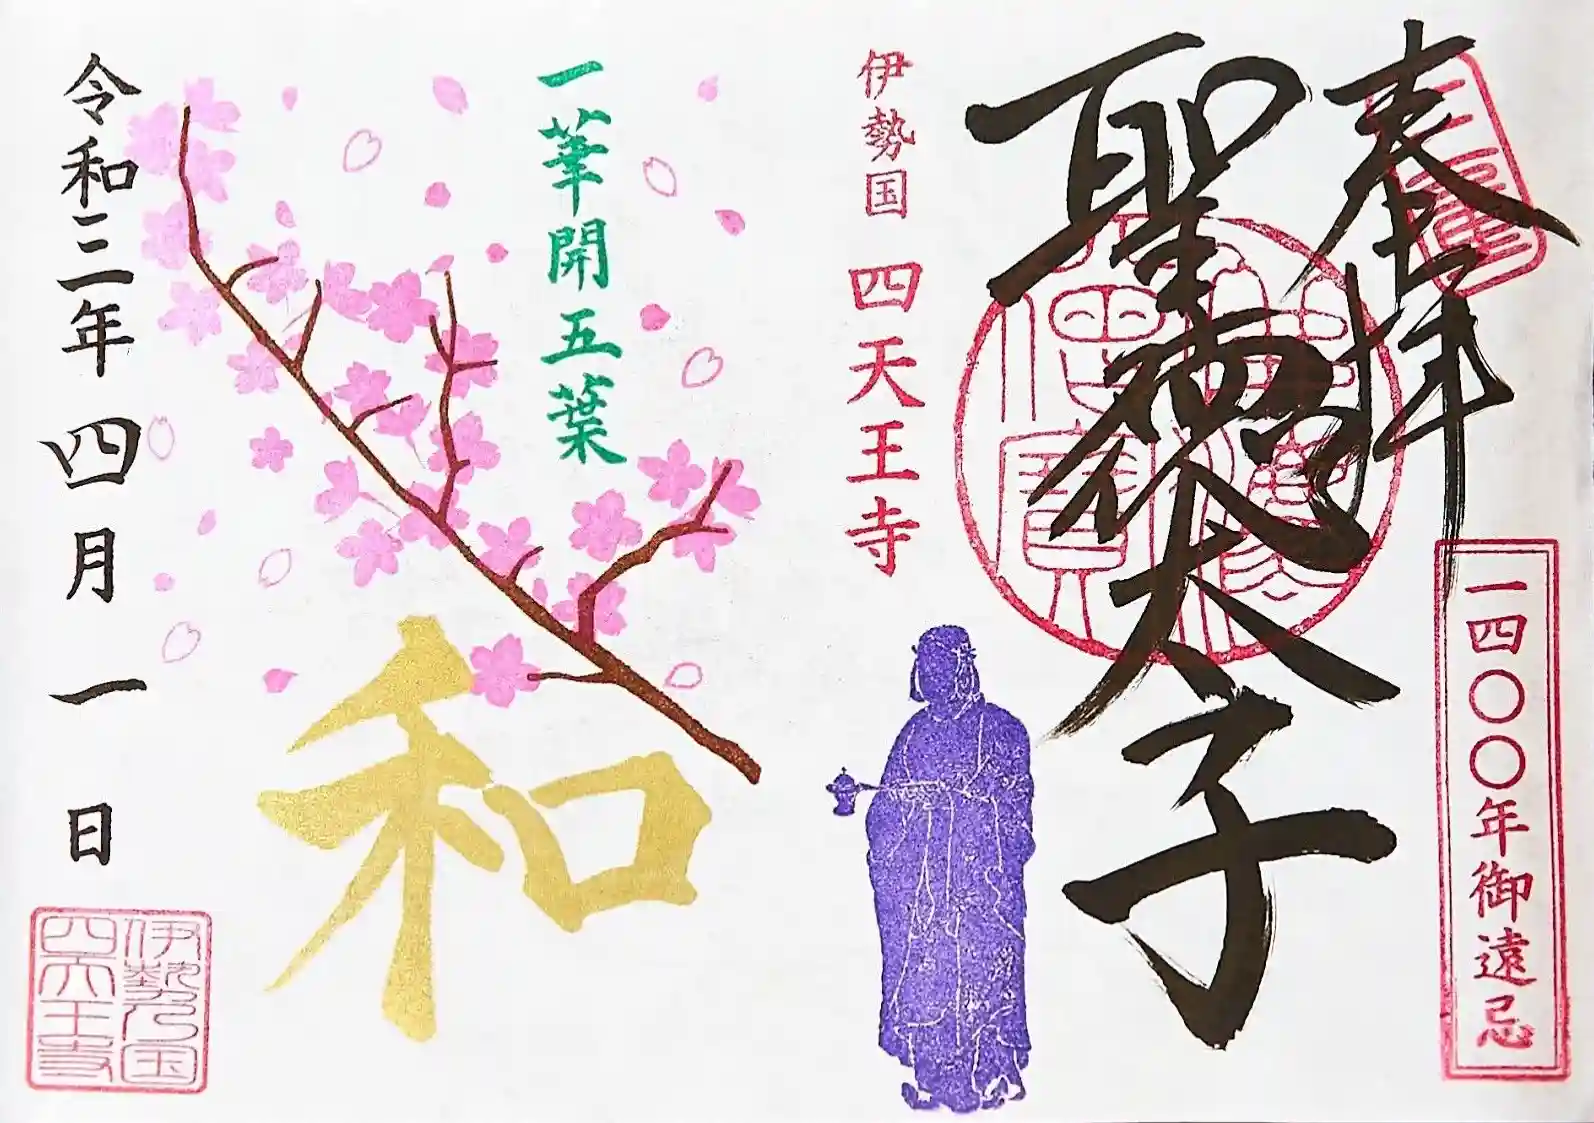 奉拝
一四〇〇年御遠忌
聖徳太子
伊勢国 四天王寺
一華開五葉
和
令和三年 四月一日
伊勢乃国
四天王寺